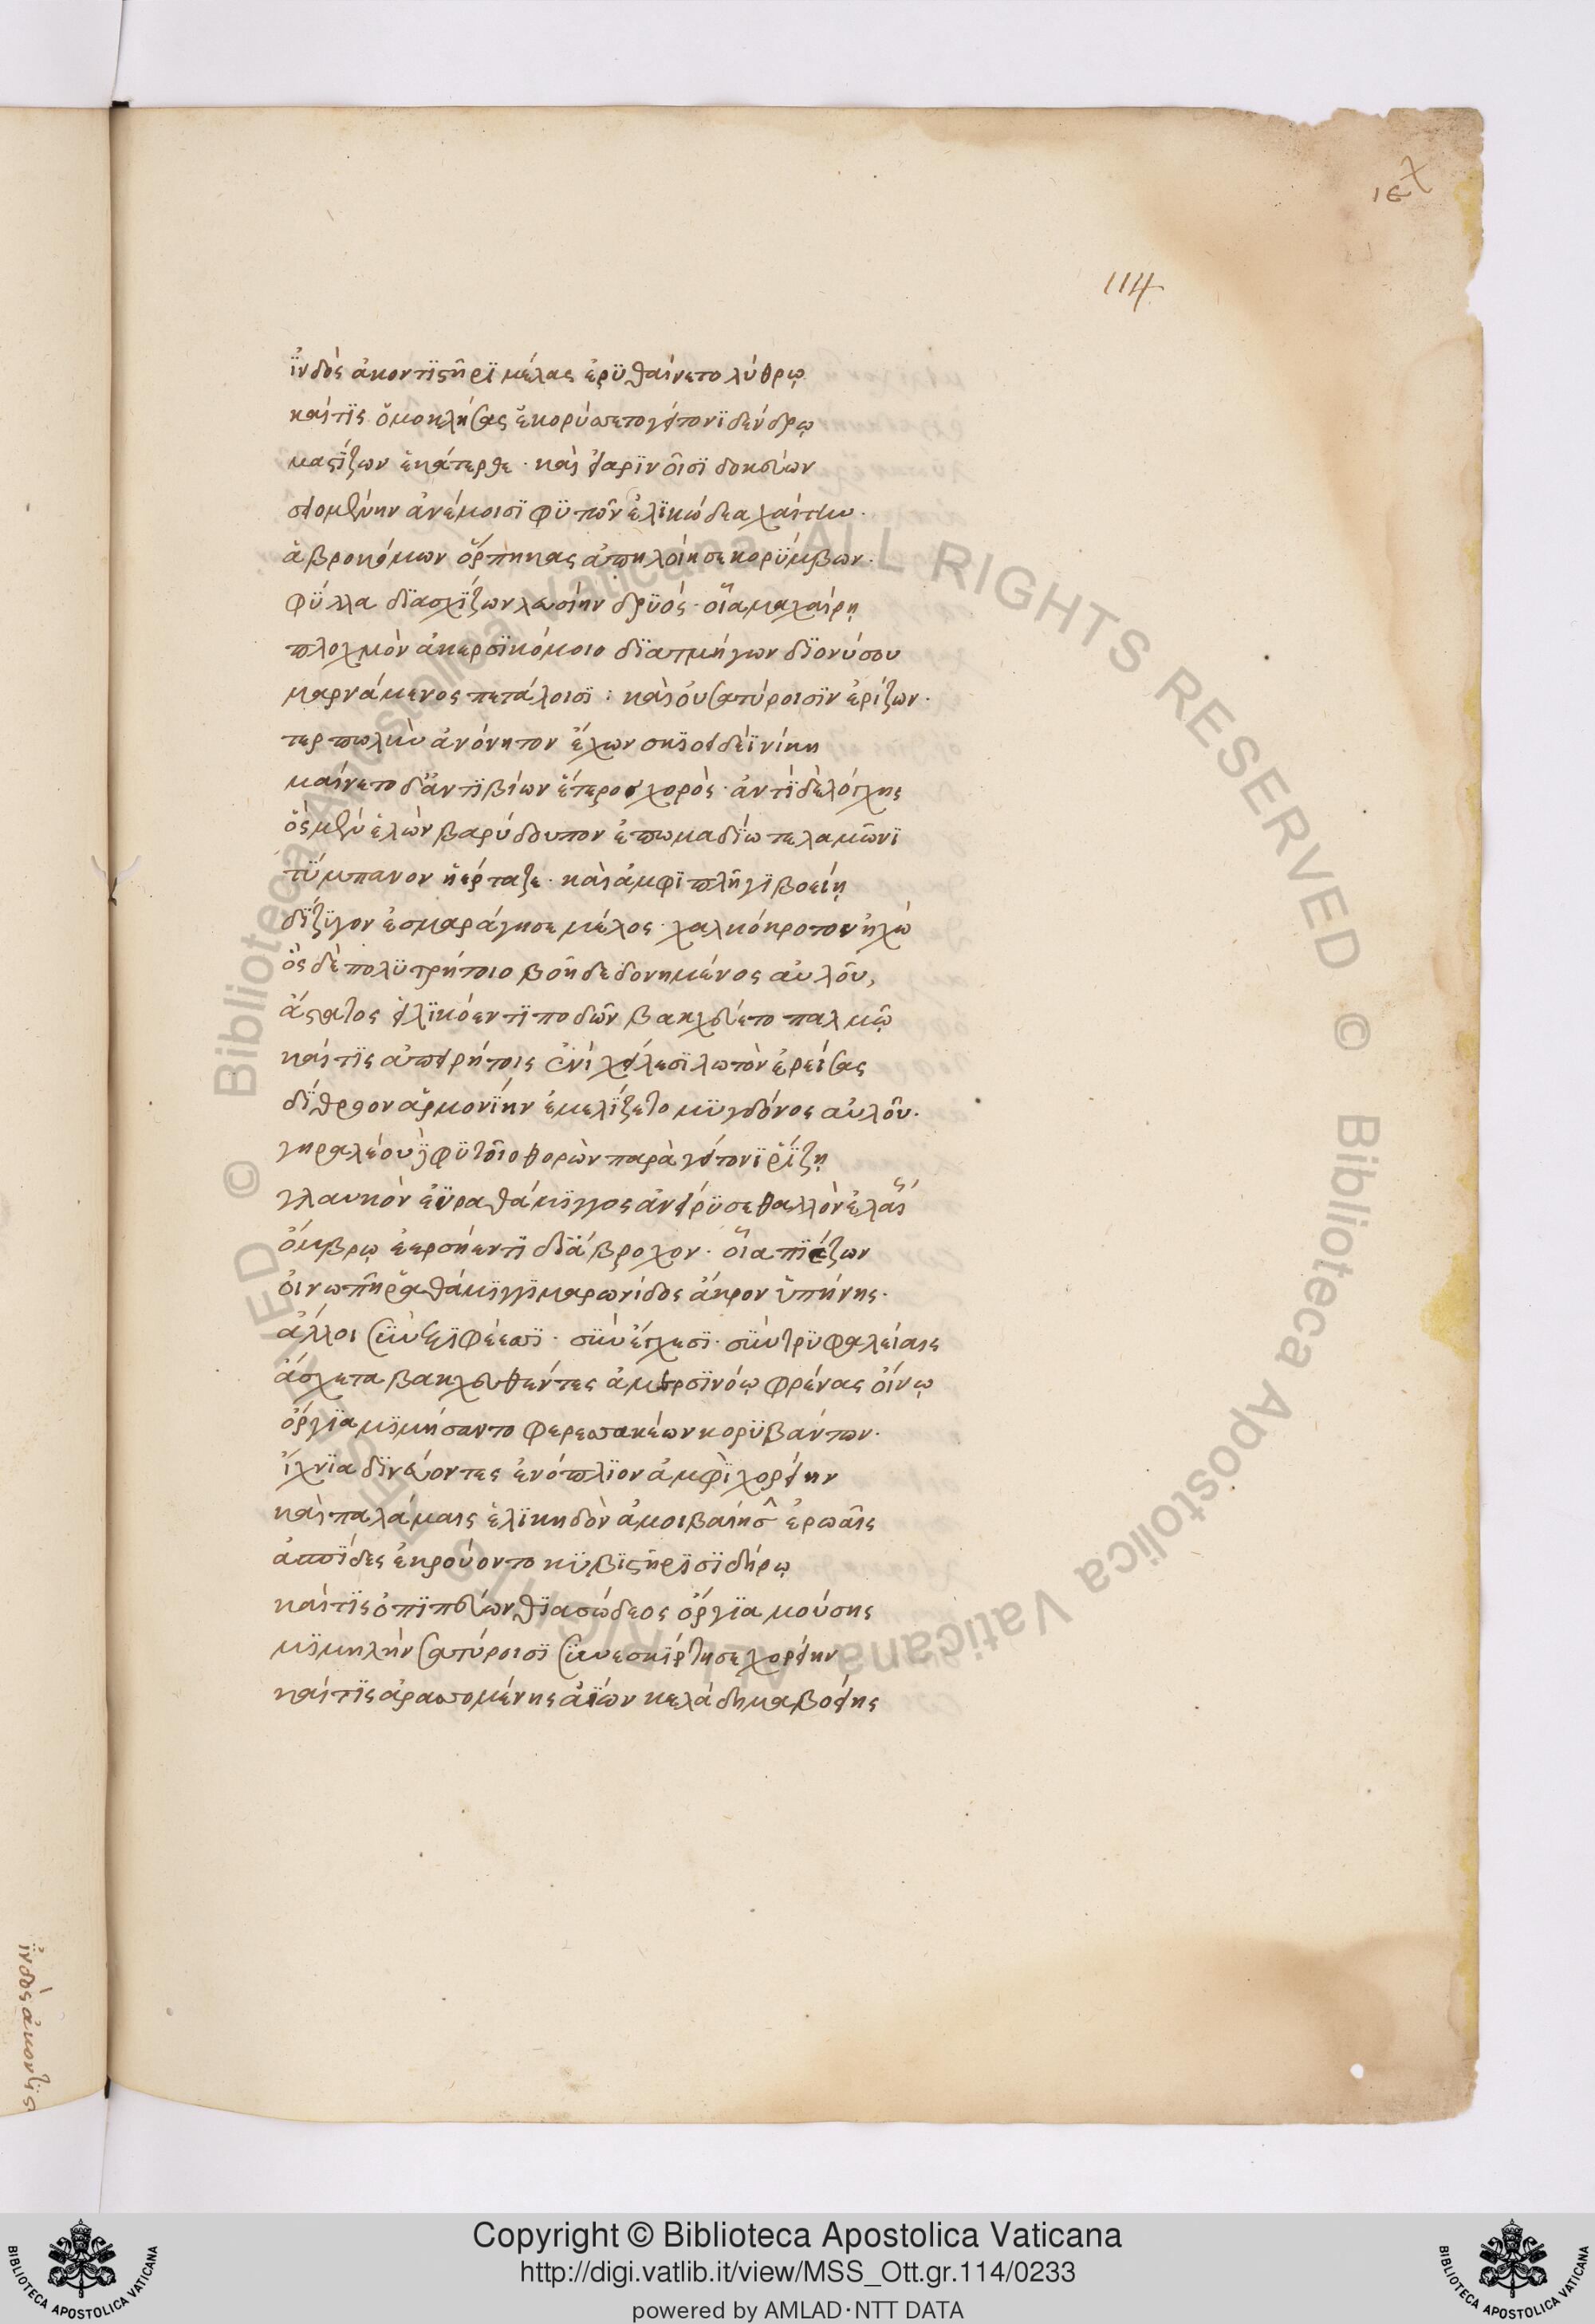 ιϛχ
114
ἰνδὸς ἀκοντιστῆρι μέλας ἐρυθαίνετο λύθρῳ
καί τις ὁμοκλήσας ἐκορύσσετο γείτονι δένδρῳ
μαστίζων ἑκάτερθε · καὶ εἰαρινοῖσι δοκεύων
σειομένην ἀνέμοισι φυτῶν ἑλικώδεα χαίτην ·
ἁβροκόμων ὅρπηκας ἀπηλοίησε κορύμβων ·
φύλλα διασχίζων λασίην δρυός · οἷα μαχαίρῃ
πλοχμὸν ἀκερσικόμοιο διατμήγων διονύσου
μαρνάμενος πετάλοισι : καὶ οὐ σατύροισιν ἐρίζων ·
τερπωλὴν ἀνόνητον ἔχων σκιοειδέϊ νίκη
μαίνετο δ' ἀντιβίων ἕτερος χορός · ἀντὶ δὲ λόγχης
ὃς μὲν ἑλὼν βαρύδουπον ἐπωμαδίω τελαμῶνι
τύμπανον ἠέρταζε · καὶ ἀμφιπλῆγι βοείῃ
δίζυγον ἐσμαράγησε μέλος · χαλκόκροτον ἠχώ
ὃς δὲ πολυτρήτοιο βοῇ δεδονημένος αὐλοῦ,
ἄστατος εἱλικόεντι ποδῶν βακχεύετο παλμῷ
καί τις ἀπειρήτοις ἐνὶ χείλεσι λωτὸν ἐρείσας
δίθροον ἁρμονίην ἐμελίζετο μυγδόνος αὐλοῦ ·
γηραλέου φυτοῖο θορὼν παρὰ γείτονι ῥίζῃ
γλαυκὸν ἐϋραθάμιγγος ἀνείρυσε θαλλὸν ἐλαίης
ὄμβρῳ ἐερσήεντι διάβροχον · οἷα πιέζων
οἰνωπῆ ῥαθάμιγγι μαρωνίδος ἄκρον ὑπήνης ·
ἄλλοι σὺν ξιφέεσσι · σὺν ἔγχεσι · σὺν τρυφαλείαις
ἄσχετα βακχευθέντες ἀμερσινόῳ φρένας οἴνῳ
ὄργια μιμήσαντο φερεσσακέων κορυβάντων ·
ἴχνια δινεύοντες ἐνόπλιον ἀμφὶ χορείην
καὶ παλάμαις ἑλικηδὸν ἀμοιβαίῃσ ἐρωαῖς
ἀσπίδες ἐκρούοντο κυβιστῆρι σιδήρῳ
καί τις ὀπιπεύων θιασώδεος ὄργια μούσης
μιμηλὴν σατύροισι συνεσκίρτησε χορείην
καί τις ἀρασσομένης ἀΐων κελάδημα βοείης
ἰνδὸς ἀκοντισ